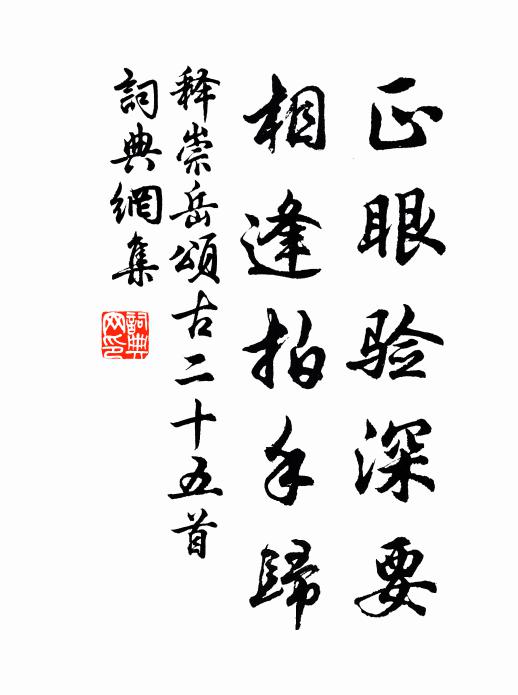 正眼验深要
相逢拍手歸
释崇岳頌古二十五首
詞典網集
詞典
网印